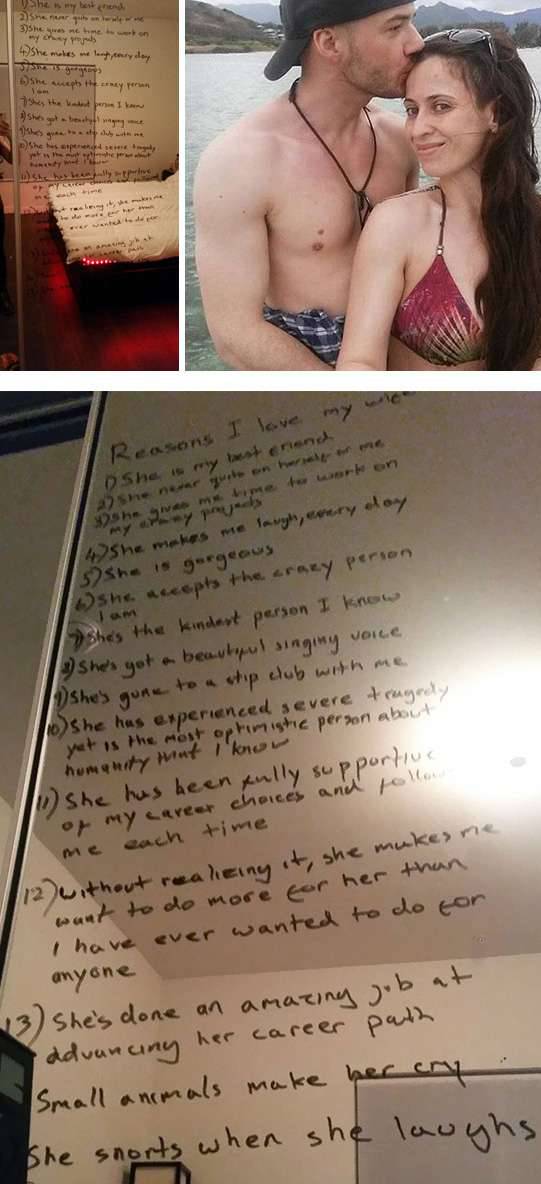 1) She is my best friend
2) She never quits on herself or me
3) She gives me time to work on
my crazy projects
4) She makes me laugh, every day
5) She is gorgeous
6) She accepts the crazy person
I am
7) She's the kindest person I know
8) She's got a beautiful singing voice
9) She's gone to a stip club with me
10) She has experienced severe tragedy
yet is the most optimistic person about
humanity that I know
11) She has been fully supportive
of my career choices and
me each time
realizing it, she makes me
to do more for her than
ever wanted to do for
an amazing job at
career path
Reasons I love my wife
1) She is my best friend
2) She never quits on herself or me
3) She gives me time to work on
my crazy projects
4) She makes me laugh, every day
5) She is gorgeous
6) She accepts the crazy person
I am
7) She's the kindest person I know
8) She's got a beautiful singing voice
9) She's gone to a stip club with me
10) She has experienced severe tragedy
yet is the most optimistic person about
humanity that I know
11) She has been fully supportive
of my career choices and follow
me each time
12) Without realizing it, she makes me
want to do more for her than
I have ever wanted to do for
anyone
13) She's done an amazing job at
advancing her career path
Small animals make her cry
She snorts when she laughs